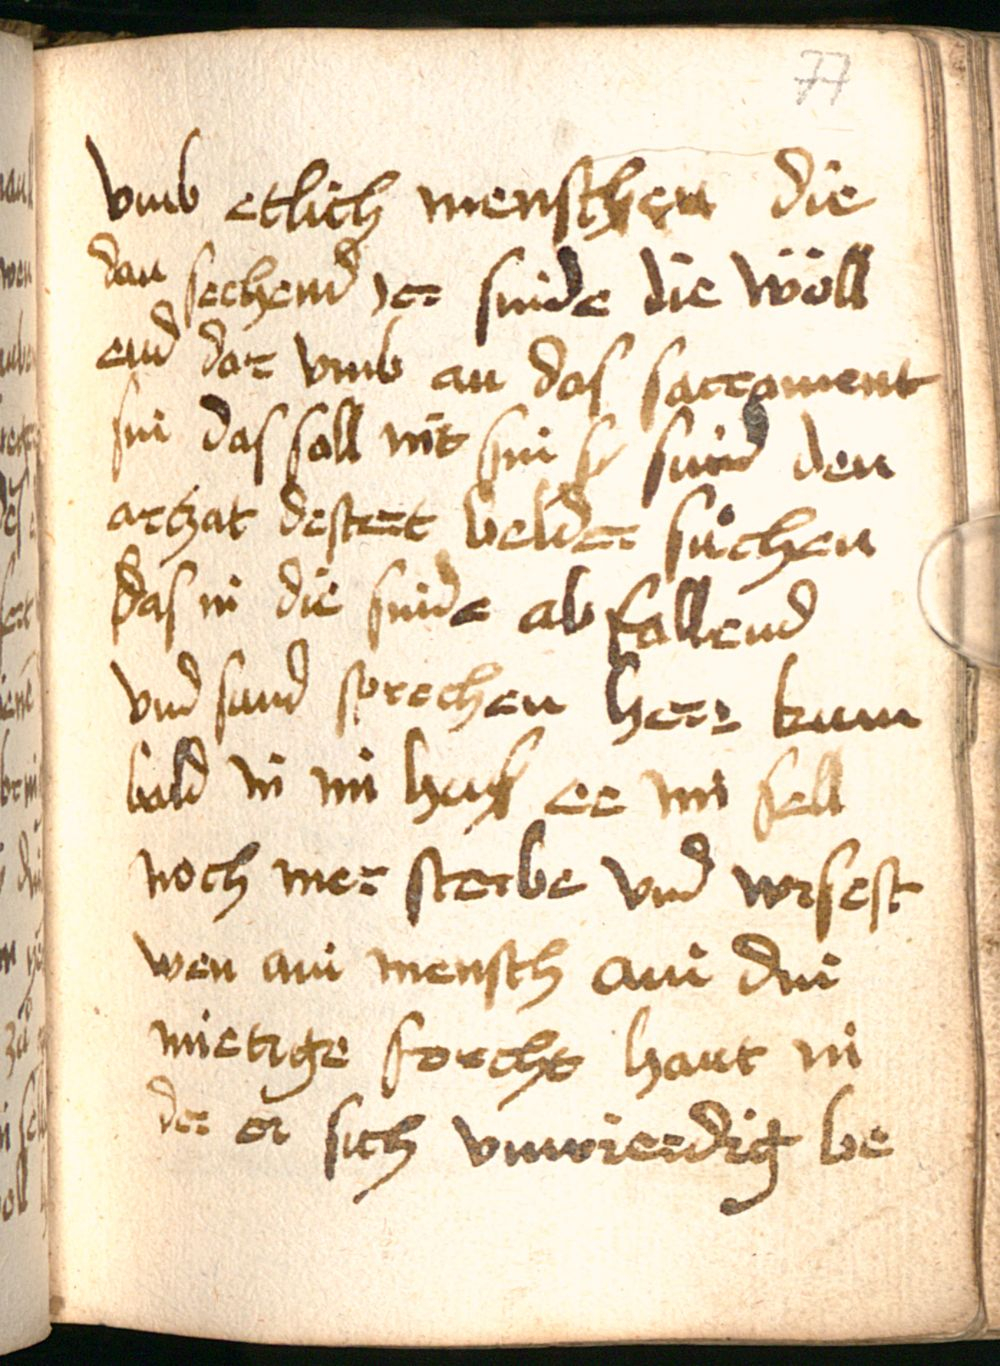 77
vmb etlich menschen die
dan sechend ir sinde die wöll
end dar vmb an das sacrament
sin das soll nit sin so sünd den
arczat destert belder sůchen
das in die sinde ab fallend
vnd sand sprechen herr kum
bald in mi hus ee mi sell
noch mer sterbe vnd wisest
wen ain mensch ain die
mietige forcht haut in
der er sich vnwierdig be